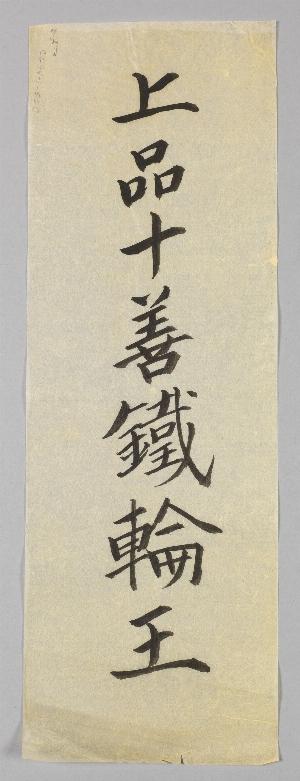 上品十善鐵輪王